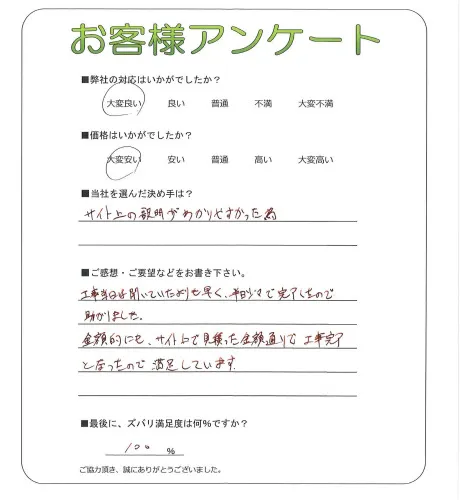 お客様アンケート
■弊社の対応はいかがでしたか？
大変良い 良い 普通 不満 大変不満
■価格はいかがでしたか？
大変安い 安い 普通 高い 大変高い
■当社を選んだ決め手は？
サイト上の説明がわかりやすかった為
■ご感想・ご要望などをお書き下さい。
工事当日は聞いていたよりも早く、半日少々で完了したので
助かりました。
金額的にも、サイト上で見積った金額通りで工事完了
となったので満足しています
■最後に、ズバリ満足度は何％ですか？
100 ％
ご協力頂き、誠にありがとうございました。